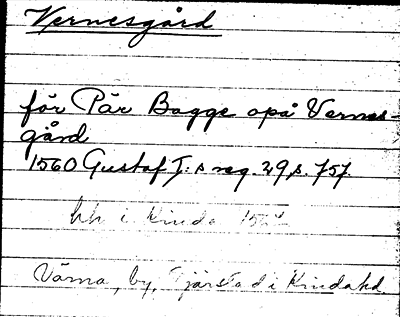 Vernesgård
för Pär Bagge opå Vernes-
gård
1560 Gustaf I:s reg. 29, s. 757.
hh i Kinda
Värna, by, Tjärstad i Kindahd